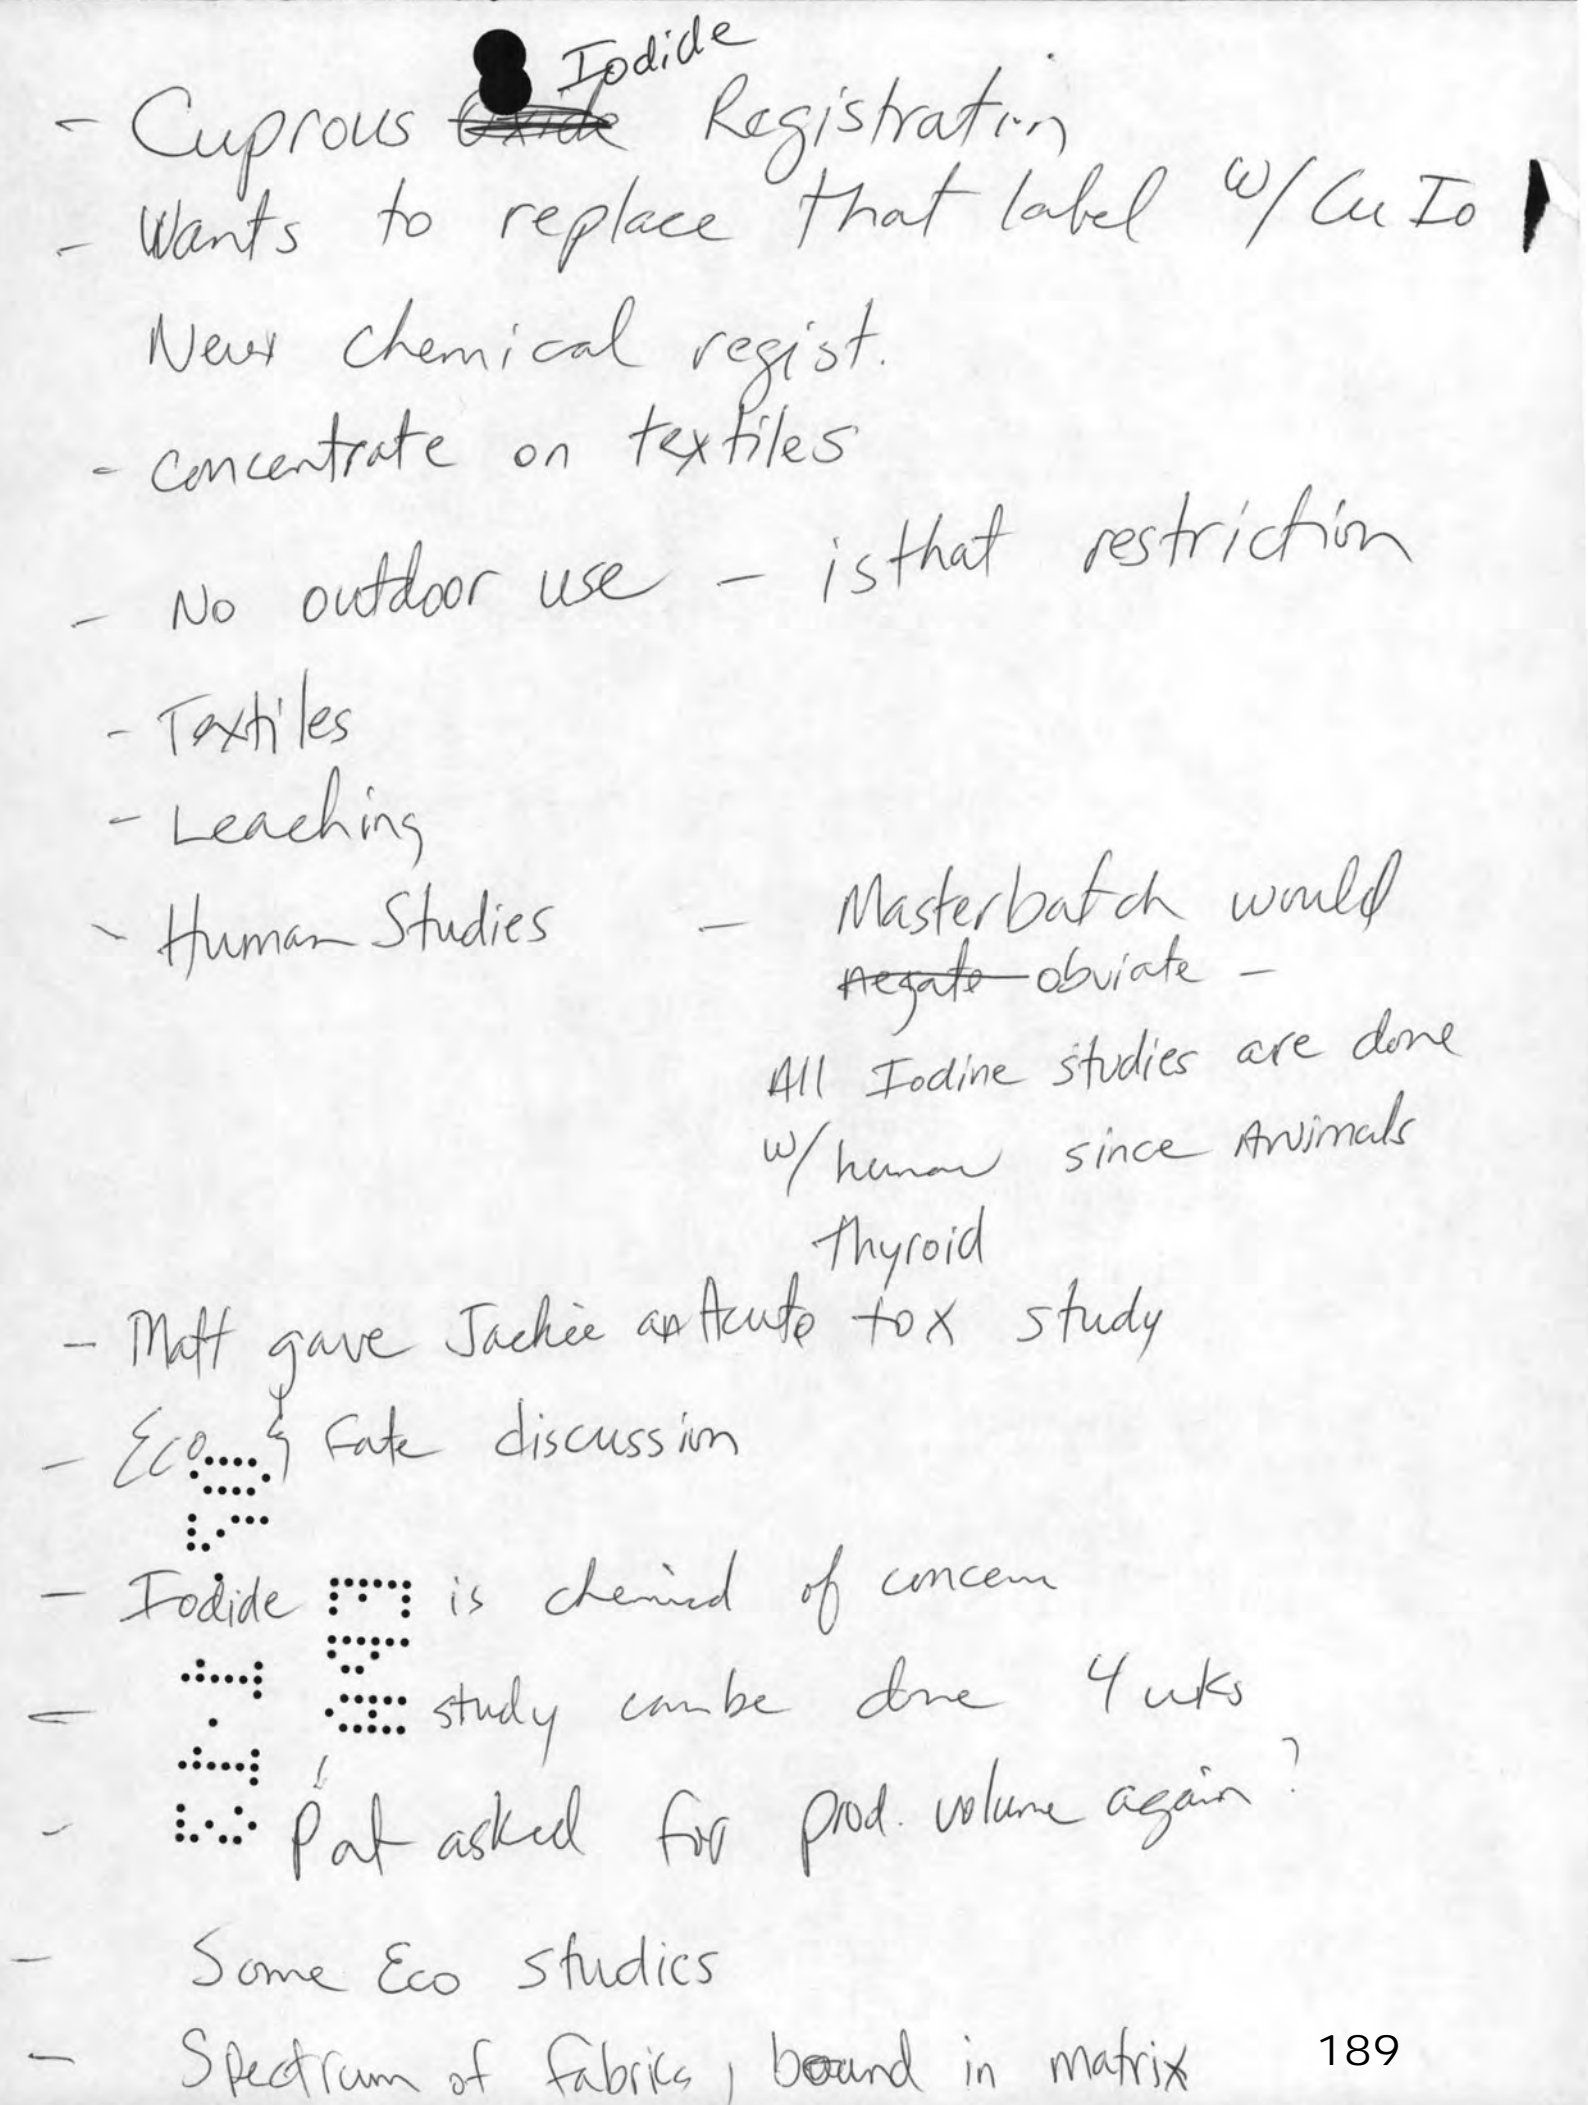 Iodide
- Cuprous Oxide Registration
- Wants to replace that label w/ Cu Io
New chemical regist.
- concentrate on textiles
- No outdoor use - is that restriction
- Textiles
- Leaching
- Human Studies - Masterbatch would
negate obviate -
All Iodine studies are done
w/ human since Animals
thyroid
- Matt gave Jackie an Acute tox study
- Eco & Fate discussion
- Iodide is chemical of concern
- study can be done 4 wks
- Pat asked for prod. volume again?
- Some Eco studies
- Spectrum of fabrics, bound in matrix
189